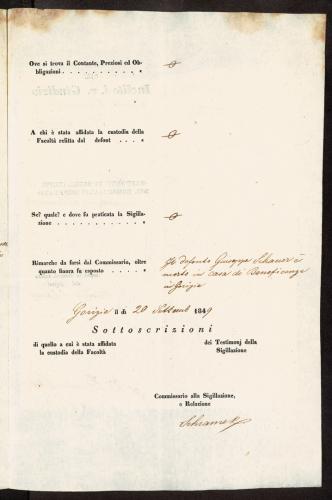 Ove si trova il Contante, Preziosi ed Ob-
bligazioni . . . . . . . . . . . "
A chi è stata affidata la custodia della
Facoltà relitta dal defont . . . . "
Se? quale? e dove fu praticata la Sigilla-
zione . . . . . . . . . . . "
Rimarche da farsi dal Commissario, oltre
quanto finora fu esposto . . . . . "
Il defonto Giuseppe Schauer è
morto in casa di Beneficenza
in Gorizia
Gorizia il dì 20 Settemb 1849
Sottoscrizioni
di quello a cui è stata affidata
la custodia della Facoltà
dei Testimonj della
Sigillazione
Commissario alla Sigillazione,
o Relazione